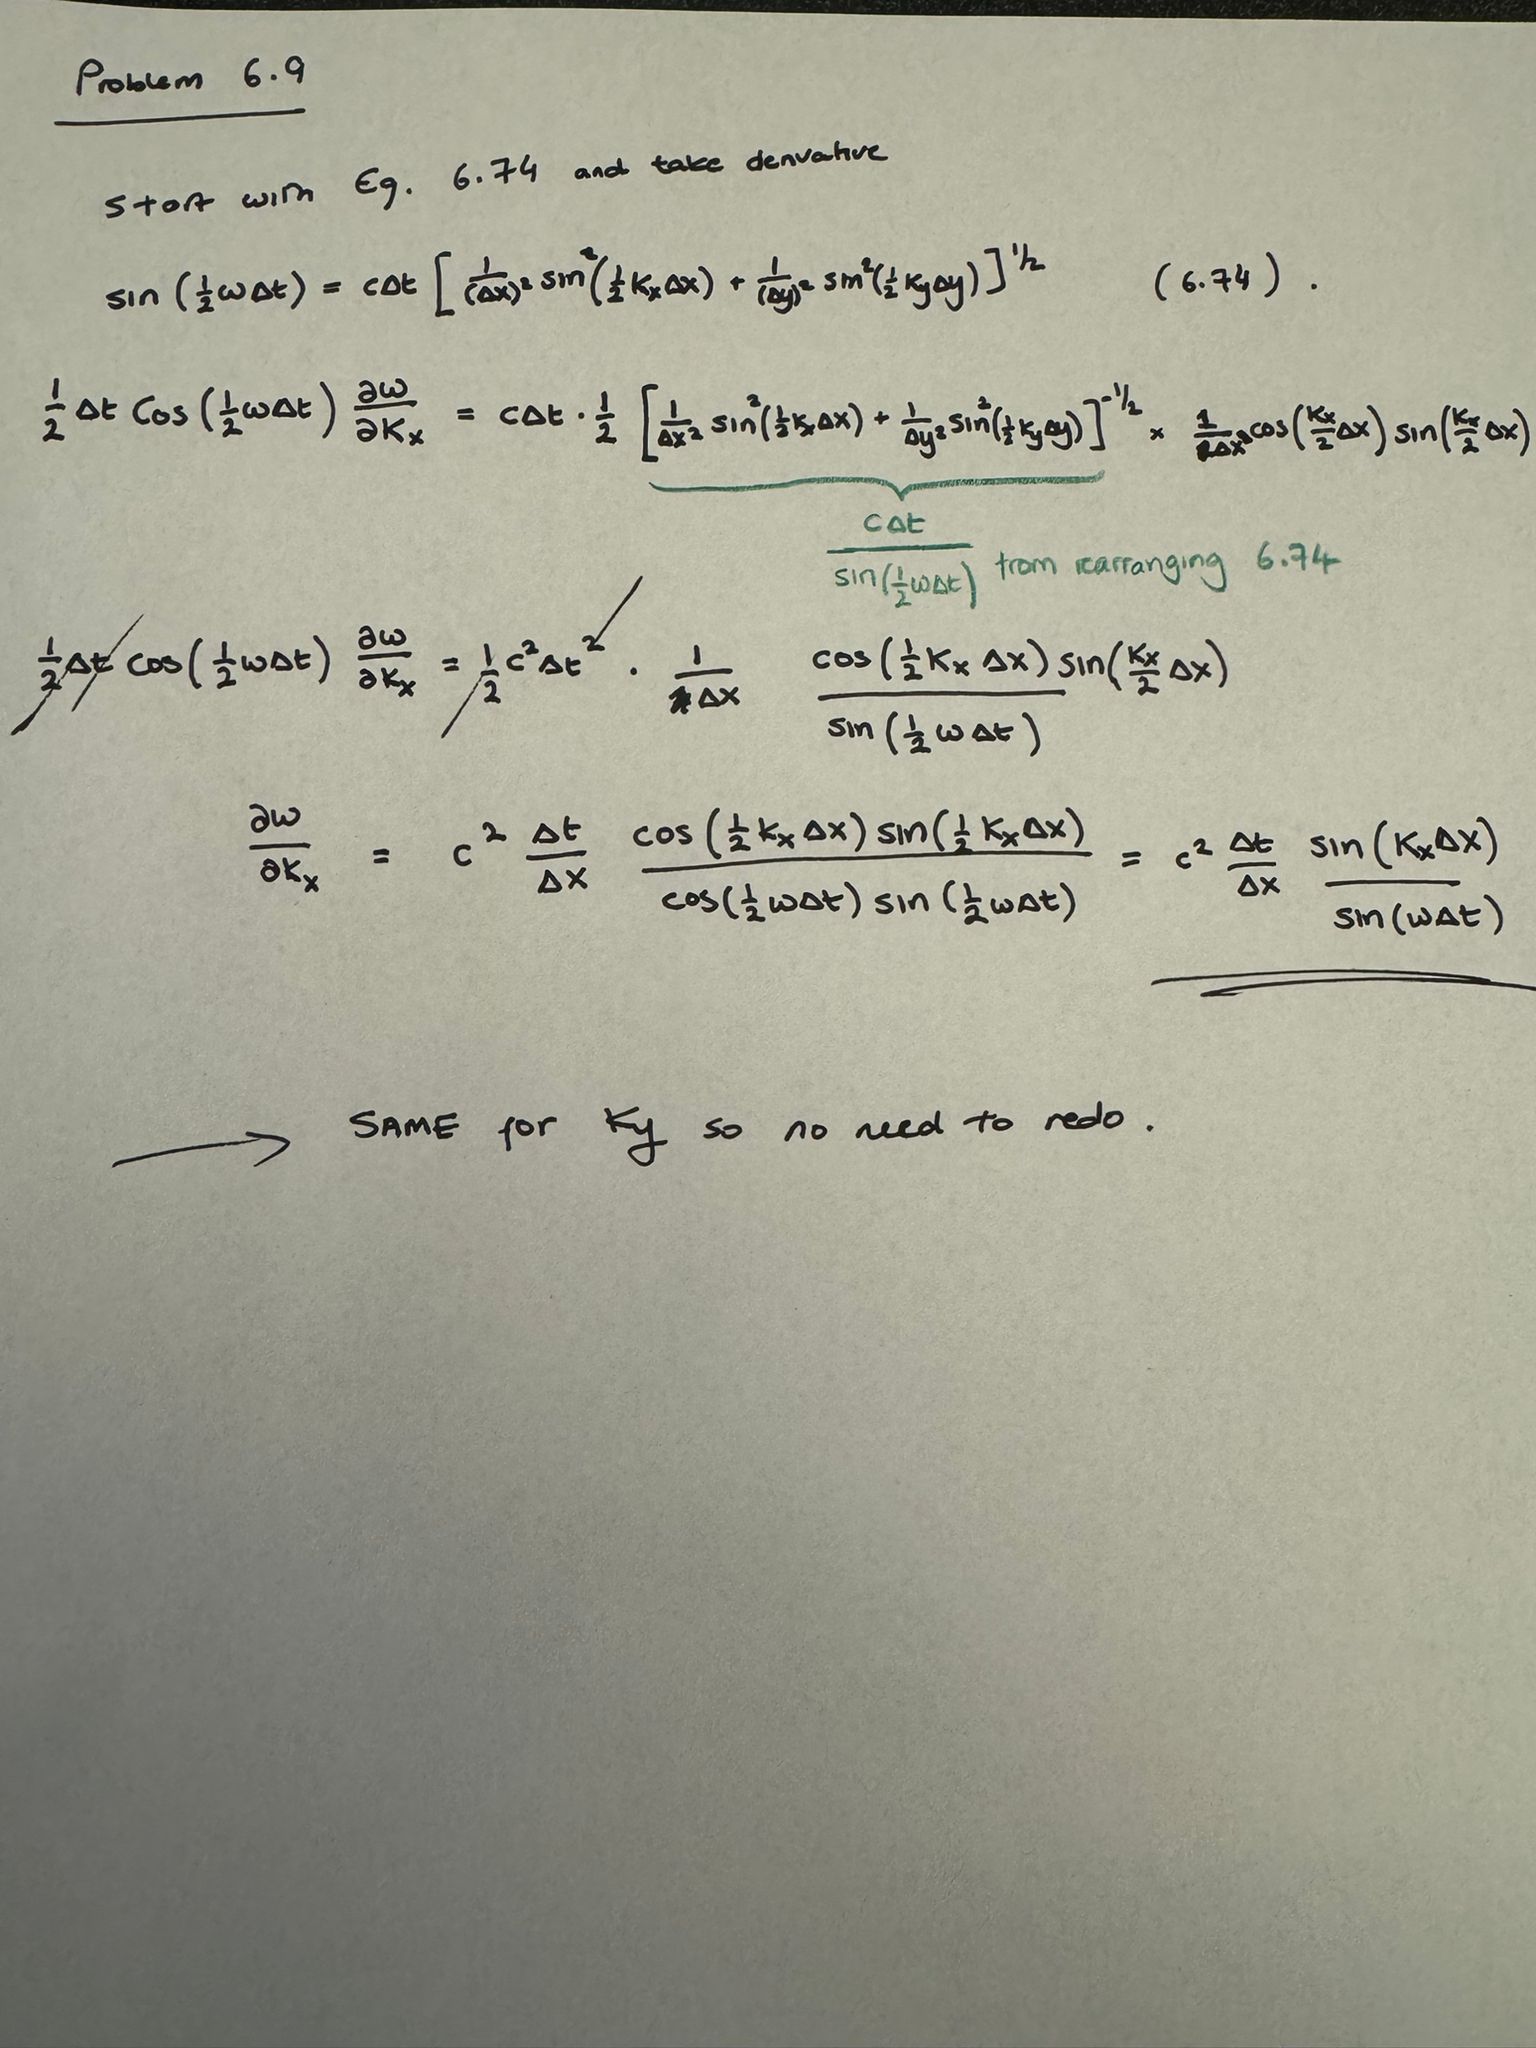 Problem 6.9
Start with Eq. 6.74 and take derivative
sin (½ωΔt) = cΔt [ 1/(Δx)² sin²(½KxΔx) + 1/(Δy)² sin²(½KyΔy) ]^1/2 (6.74) .
½ Δt Cos (½ωΔt) ∂ω/∂Kx = cΔt · ½ [ 1/Δx² sin²(½KxΔx) + 1/Δy² sin²(½KyΔy) ]^-1/2 × 1/Δx cos(Kx/2 Δx) sin(Kx/2 Δx)
cΔt / sin(½ωΔt) from rearranging 6.74
½Δt cos(½ωΔt) ∂ω/∂Kx = ½ c²Δt² · 1/Δx cos(½KxΔx) sin(Kx/2 Δx) / sin(½ωΔt)
∂ω/∂Kx = c² Δt/Δx cos(½KxΔx) sin(½KxΔx) / cos(½ωΔt) sin(½ωΔt) = c² Δt/Δx sin(KxΔx) / sin(ωΔt)
→ SAME for Ky so no need to redo .